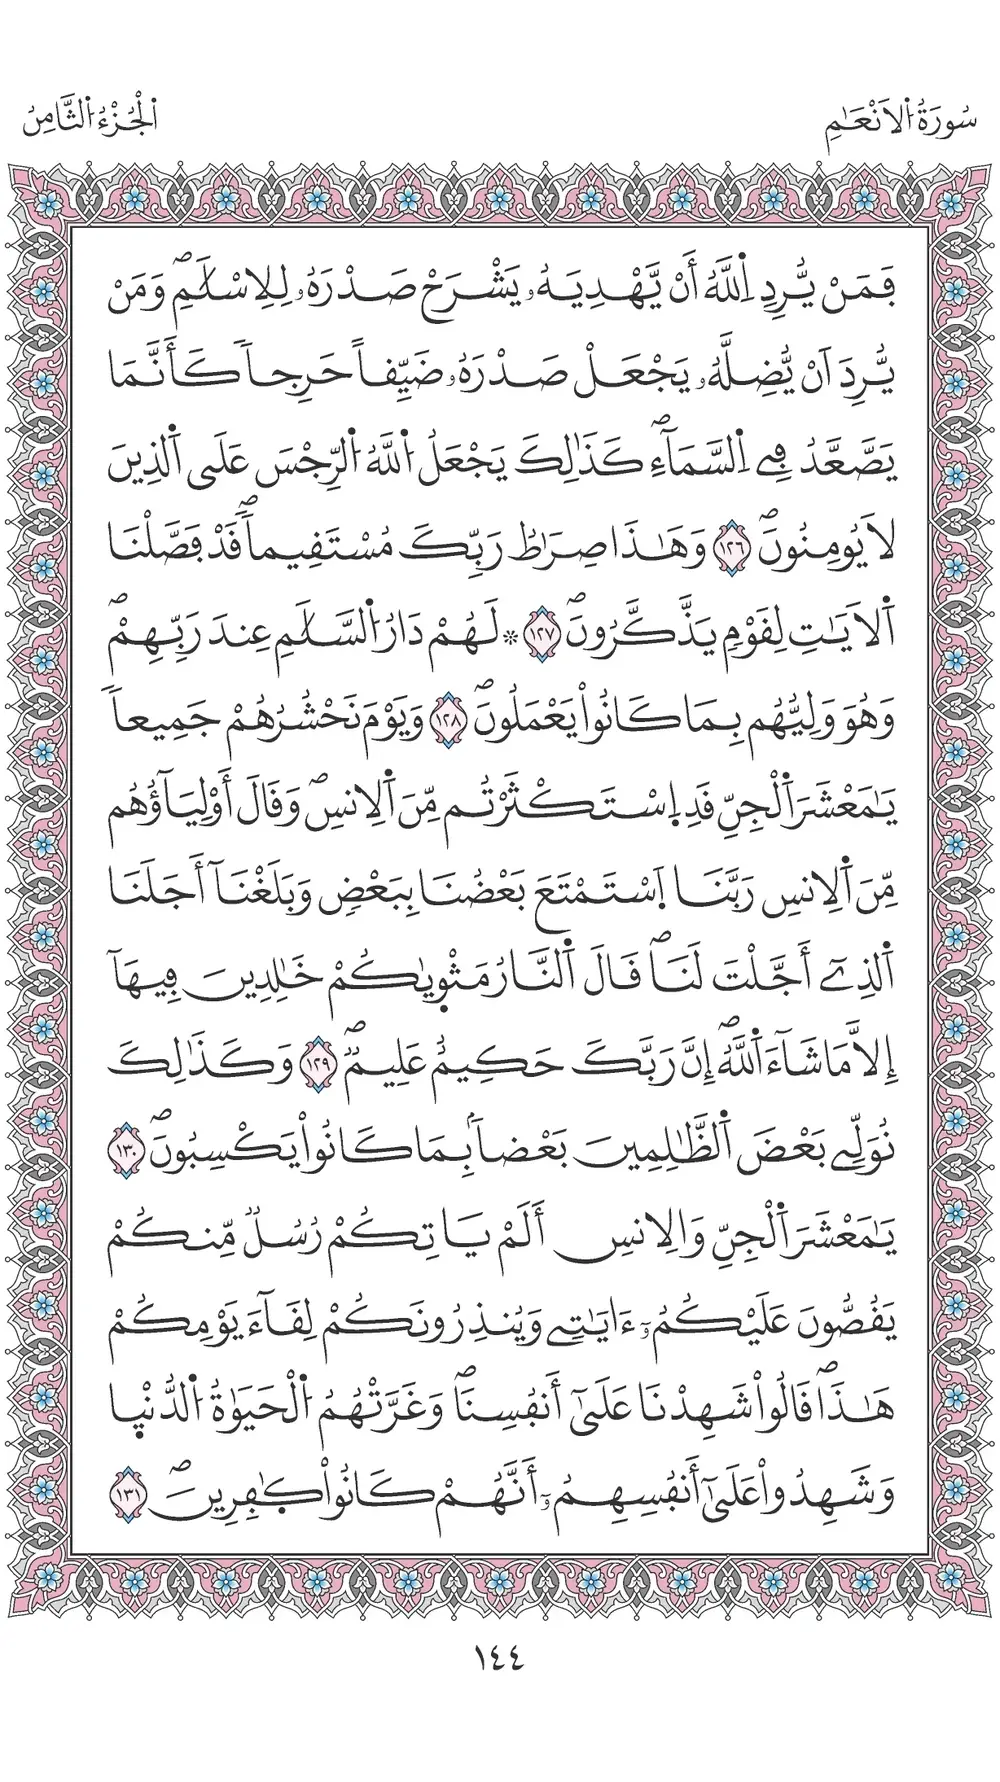 سُورَةُ اُ۬لَانْعَٰمِ
اُ۬لْجُزْءُ اُ۬لثَّامِنُ
فَمَنْ يُّرِدِ اِ۬للَّهُ أَنْ يَّهْدِيَهُۥ يَشْرَحْ صَدْرَهُۥ لِلِاسْلَٰمِۖ وَمَنْ
يُّرِدَ اَنْ يُّضِلَّهُۥ يَجْعَلْ صَدْرَهُۥ ضَيِّقاً حَرِجاٗ كَأَنَّمَا
يَصَّعَّدُ فِے اِ۬لسَّمَآءِۖ كَذَٰلِكَ يَجْعَلُ اُ۬للَّهُ اُ۬لرِّجْسَ عَلَى اَ۬لذِينَ
لَا يُومِنُونَۖ ١٢٦ وَهَٰذَا صِرَٰطُ رَبِّكَ مُسْتَقِيماٗۖ قَدْ فَصَّلْنَا
اَ۬لَايَٰتِ لِقَوْمٖ يَذَّكَّرُونَۖ ١٢٧ ۞ لَهُمْ دَارُ اُ۬لسَّلَٰمِ عِندَ رَبِّهِمْۖ
وَهُوَ وَلِيُّهُم بِمَا كَانُواْ يَعْمَلُونَۖ ١٢٨ وَيَوْمَ نَحْشُرُهُمْ جَمِيعاٗ
يَٰمَعْشَرَ اَ۬لْجِنِّ قَدِ اِ۪سْتَكْثَرْتُم مِّنَ اَ۬لِانسِۖ وَقَالَ أَوْلِيَآؤُهُم
مِّنَ اَ۬لِانسِ رَبَّنَا اَ۪سْتَمْتَعَ بَعْضُنَا بِبَعْضٖ وَبَلَغْنَآ أَجَلَنَا
اَ۬لذِےٓ أَجَّلْتَ لَنَاۖ قَالَ اَ۬لنَّارُ مَثْو۪يٰكُمْ خَٰلِدِينَ فِيهَآ
إِلَّا مَا شَآءَ اَ۬للَّهُۖ إِنَّ رَبَّكَ حَكِيمٌ عَلِيمٞۖ ١٢٩ وَكَذَٰلِكَ
نُوَلِّے بَعْضَ اَ۬لظَّٰلِمِينَ بَعْضاَۢ بِمَا كَانُواْ يَكْسِبُونَۖ ١٣٠
يَٰمَعْشَرَ اَ۬لْجِنِّ وَالِانسِ أَلَمْ يَاتِكُمْ رُسُلٞ مِّنكُمْ
يَقُصُّونَ عَلَيْكُمُۥٓ ءَايَٰتِے وَيُنذِرُونَكُمْ لِقَآءَ يَوْمِكُمْ
هَٰذَاۖ قَالُواْ شَهِدْنَا عَلَىٰٓ أَنفُسِنَاۖ وَغَرَّتْهُمُ اُ۬لْحَيَوٰةُ اُ۬لدُّنْي۪ا
وَشَهِدُواْ عَلَىٰٓ أَنفُسِهِمُۥٓ أَنَّهُمْ كَانُواْ كٰ۪فِرِينَۖ ١٣١
١٤٤